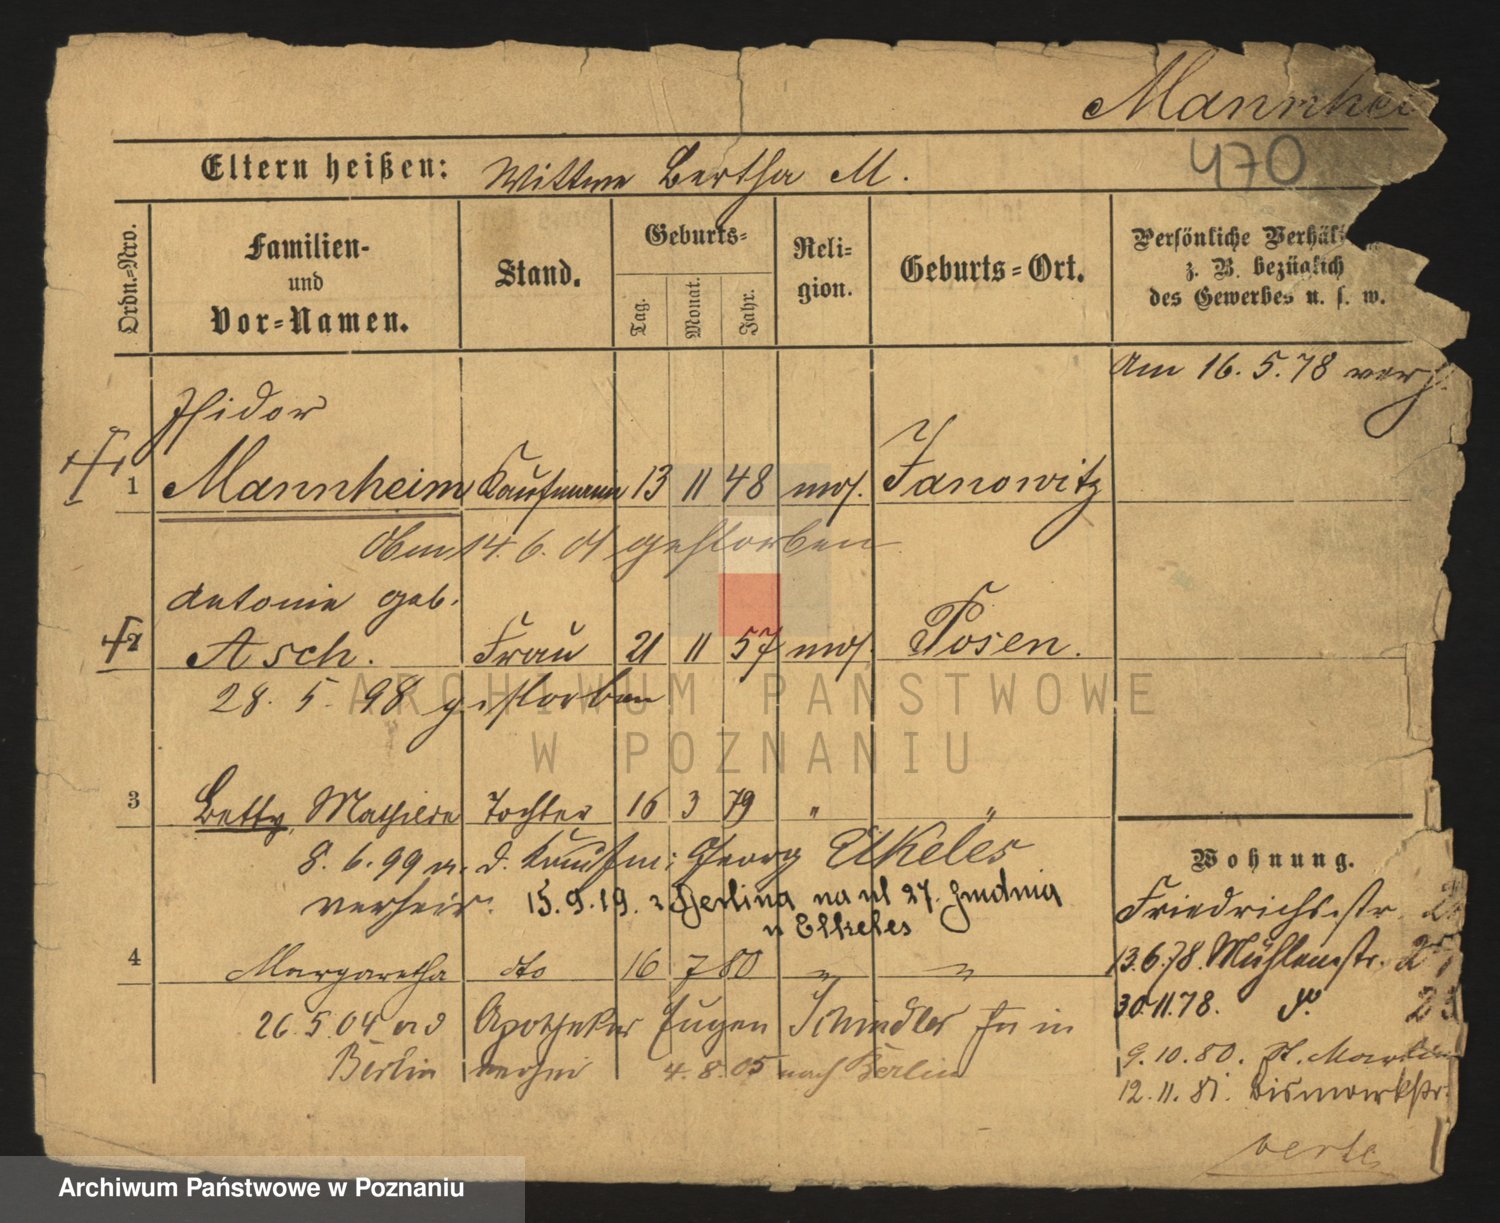 Mannhei
470
Eltern heißen: Wittwe Bertha M.
Ordn.-Nro.
Familien-
und
Vor-Namen.
Stand.
Geburts-
Tag.
Monat.
Jahr.
Reli-
gion.
Geburts-Ort.
Persönliche Verhäl
z. B. bezüglich
des Gewerbes u. s. w.
Am 16. 5. 78 verh.
Isidor
1 Mannheim Kaufmann 13 11 48 mos. Janowitz
14. 6. 01 gestorben
Antonie geb.
2 Asch. Frau 21 11 57 mos. Posen.
28. 5. 98 gestorben
3 Betty, Mathilde Tochter 16 3 79 " "
8. 6. 99 m. d. Kaufm: Georg Elkeles
verheir. 15. 9. 19. z Berlina na ul 27. Grudnia
u Elkeles
4 Margaretha dto 16 7 80 " "
26. 5. 04 Apotheker Eugen Schindler in
Berlin verhei 4. 8. 05 nach Berlin
Wohnung.
Friedrichsstr. 2
13. 6. 78. Mühlenstr. 2
30. 11. 78. 23
9. 10. 80. St. Martin
12. 11. 81. Bismarckstr.
verte
ARCHIWUM PAŃSTWOWE
W POZNANIU
Archiwum Państwowe w Poznaniu